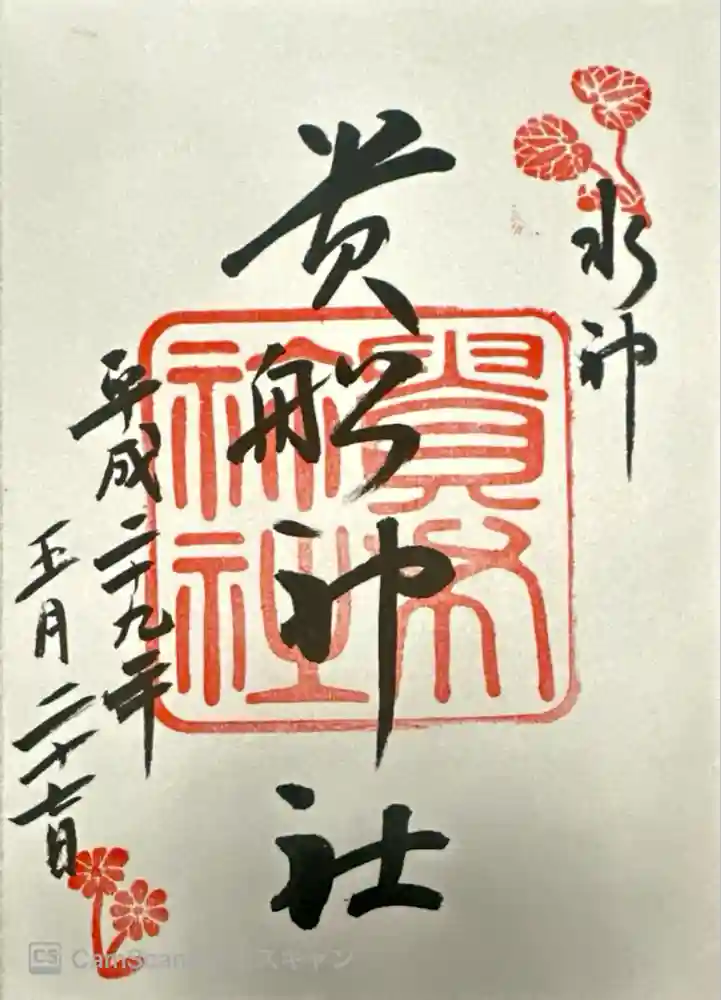 水神
貴船神社
平成二十九年
五月二十七日
CS CamScan
スキャン